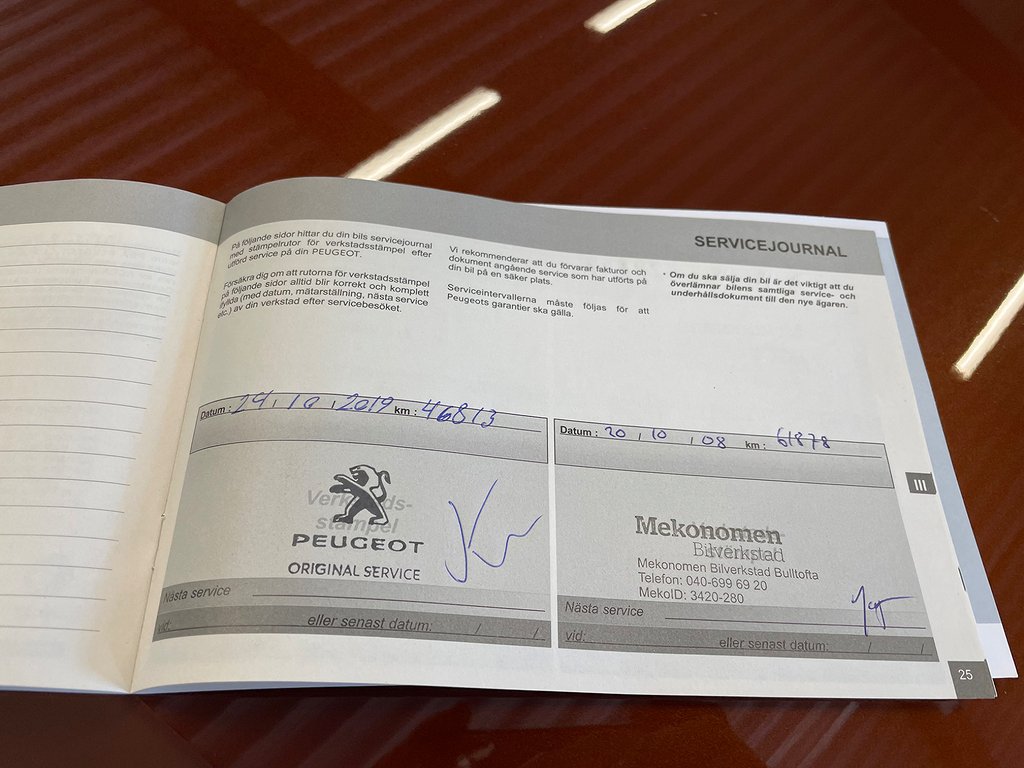 SERVICEJOURNAL
På följande sidor hittar du din bils servicejournal
med stämpelrutor för verkstadsstämpel efter
utförd service på din PEUGEOT.
Försäkra dig om att rutorna för verkstadsstämpel
på följande sidor alltid blir korrekt och komplett
ifyllda (med datum, mätarställning, nästa service
etc.) av din verkstad efter servicebesöket.
Vi rekommenderar att du förvarar fakturor och
dokument angående service som har utförts på
din bil på en säker plats.
Serviceintervallerna måste följas för att
Peugeots garantier ska gälla.
* Om du ska sälja din bil är det viktigt att du
överlämnar bilens samtliga service- och
underhållsdokument till den nye ägaren.
Datum : 24 , 10 , 2019 km : 46813
Verkstads-
stämpel
PEUGEOT
ORIGINAL SERVICE
Nästa service
vid: eller senast datum: / /
Datum : 20 , 10 , 08 km : 61878
Mekonomen
Bilverkstad
Mekonomen Bilverkstad Bulltofta
Telefon: 040-699 69 20
MekoID: 3420-280
Nästa service
vid: eller senast datum: / /
III
25